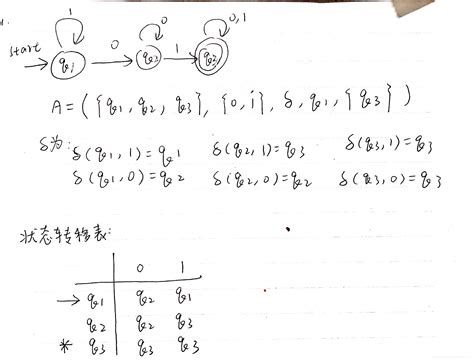 1.
1 0 0,1
start q1 0 q2 1 q3
A = ( {q1, q2, q3}, {0, 1}, δ, q1, {q3} )
δ为: δ(q1, 1) = q1 δ(q2, 1) = q3 δ(q3, 1) = q3
δ(q1, 0) = q2 δ(q2, 0) = q2 δ(q3, 0) = q3
状态转移表:
0 1
→ q1 q2 q1
q2 q2 q3
* q3 q3 q3